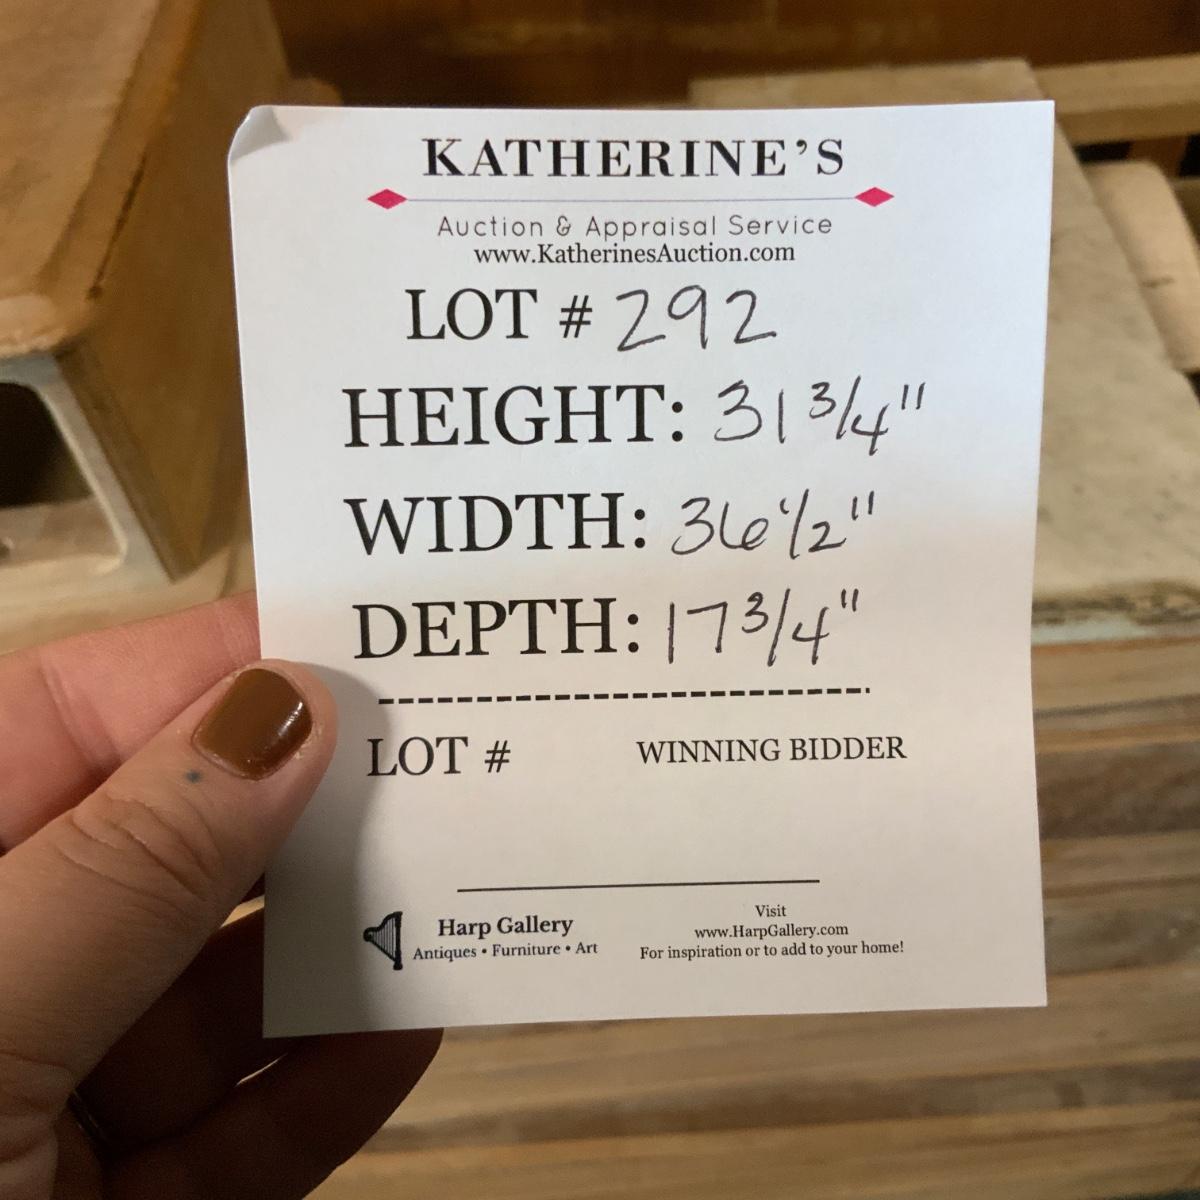 KATHERINE'S
Auction & Appraisal Service
www.KatherinesAuction.com
LOT # 292
HEIGHT: 31 3/4"
WIDTH: 36 1/2"
DEPTH: 17 3/4"
LOT # WINNING BIDDER
Harp Gallery
Antiques • Furniture • Art
Visit
www.HarpGallery.com
For inspiration or to add to your home!